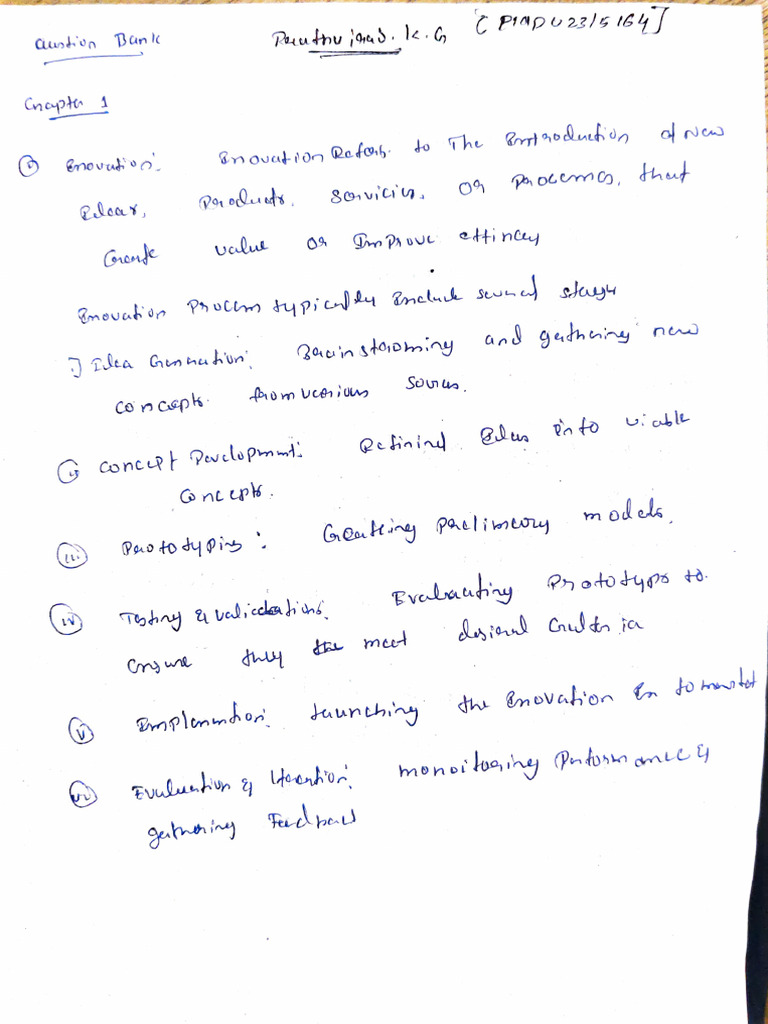 Qustion Bank
K.G [PIADU23/5164]
Chapter 1
Enovation: Enovation Refers to The Entroduction of New
Edear, Products, Servicies, or processes, that
Create value or Improve efficency
Enovation Process typically Enclude several stages
i) Idea Generation: Brainstorming and gathering new
concepts from various Sources.
ii Concept Development: Refining Edeas into viable
Concepts.
iii Prototyping: Creatting prelimery models.
iv Testing & validations: Evaluating Prototyps to
ensure they the meet desired Criteria
v Emplemention: launching the Enovation En to market
vi Evaluation & Iteration: monoitoring Performance &
gathering Feedback